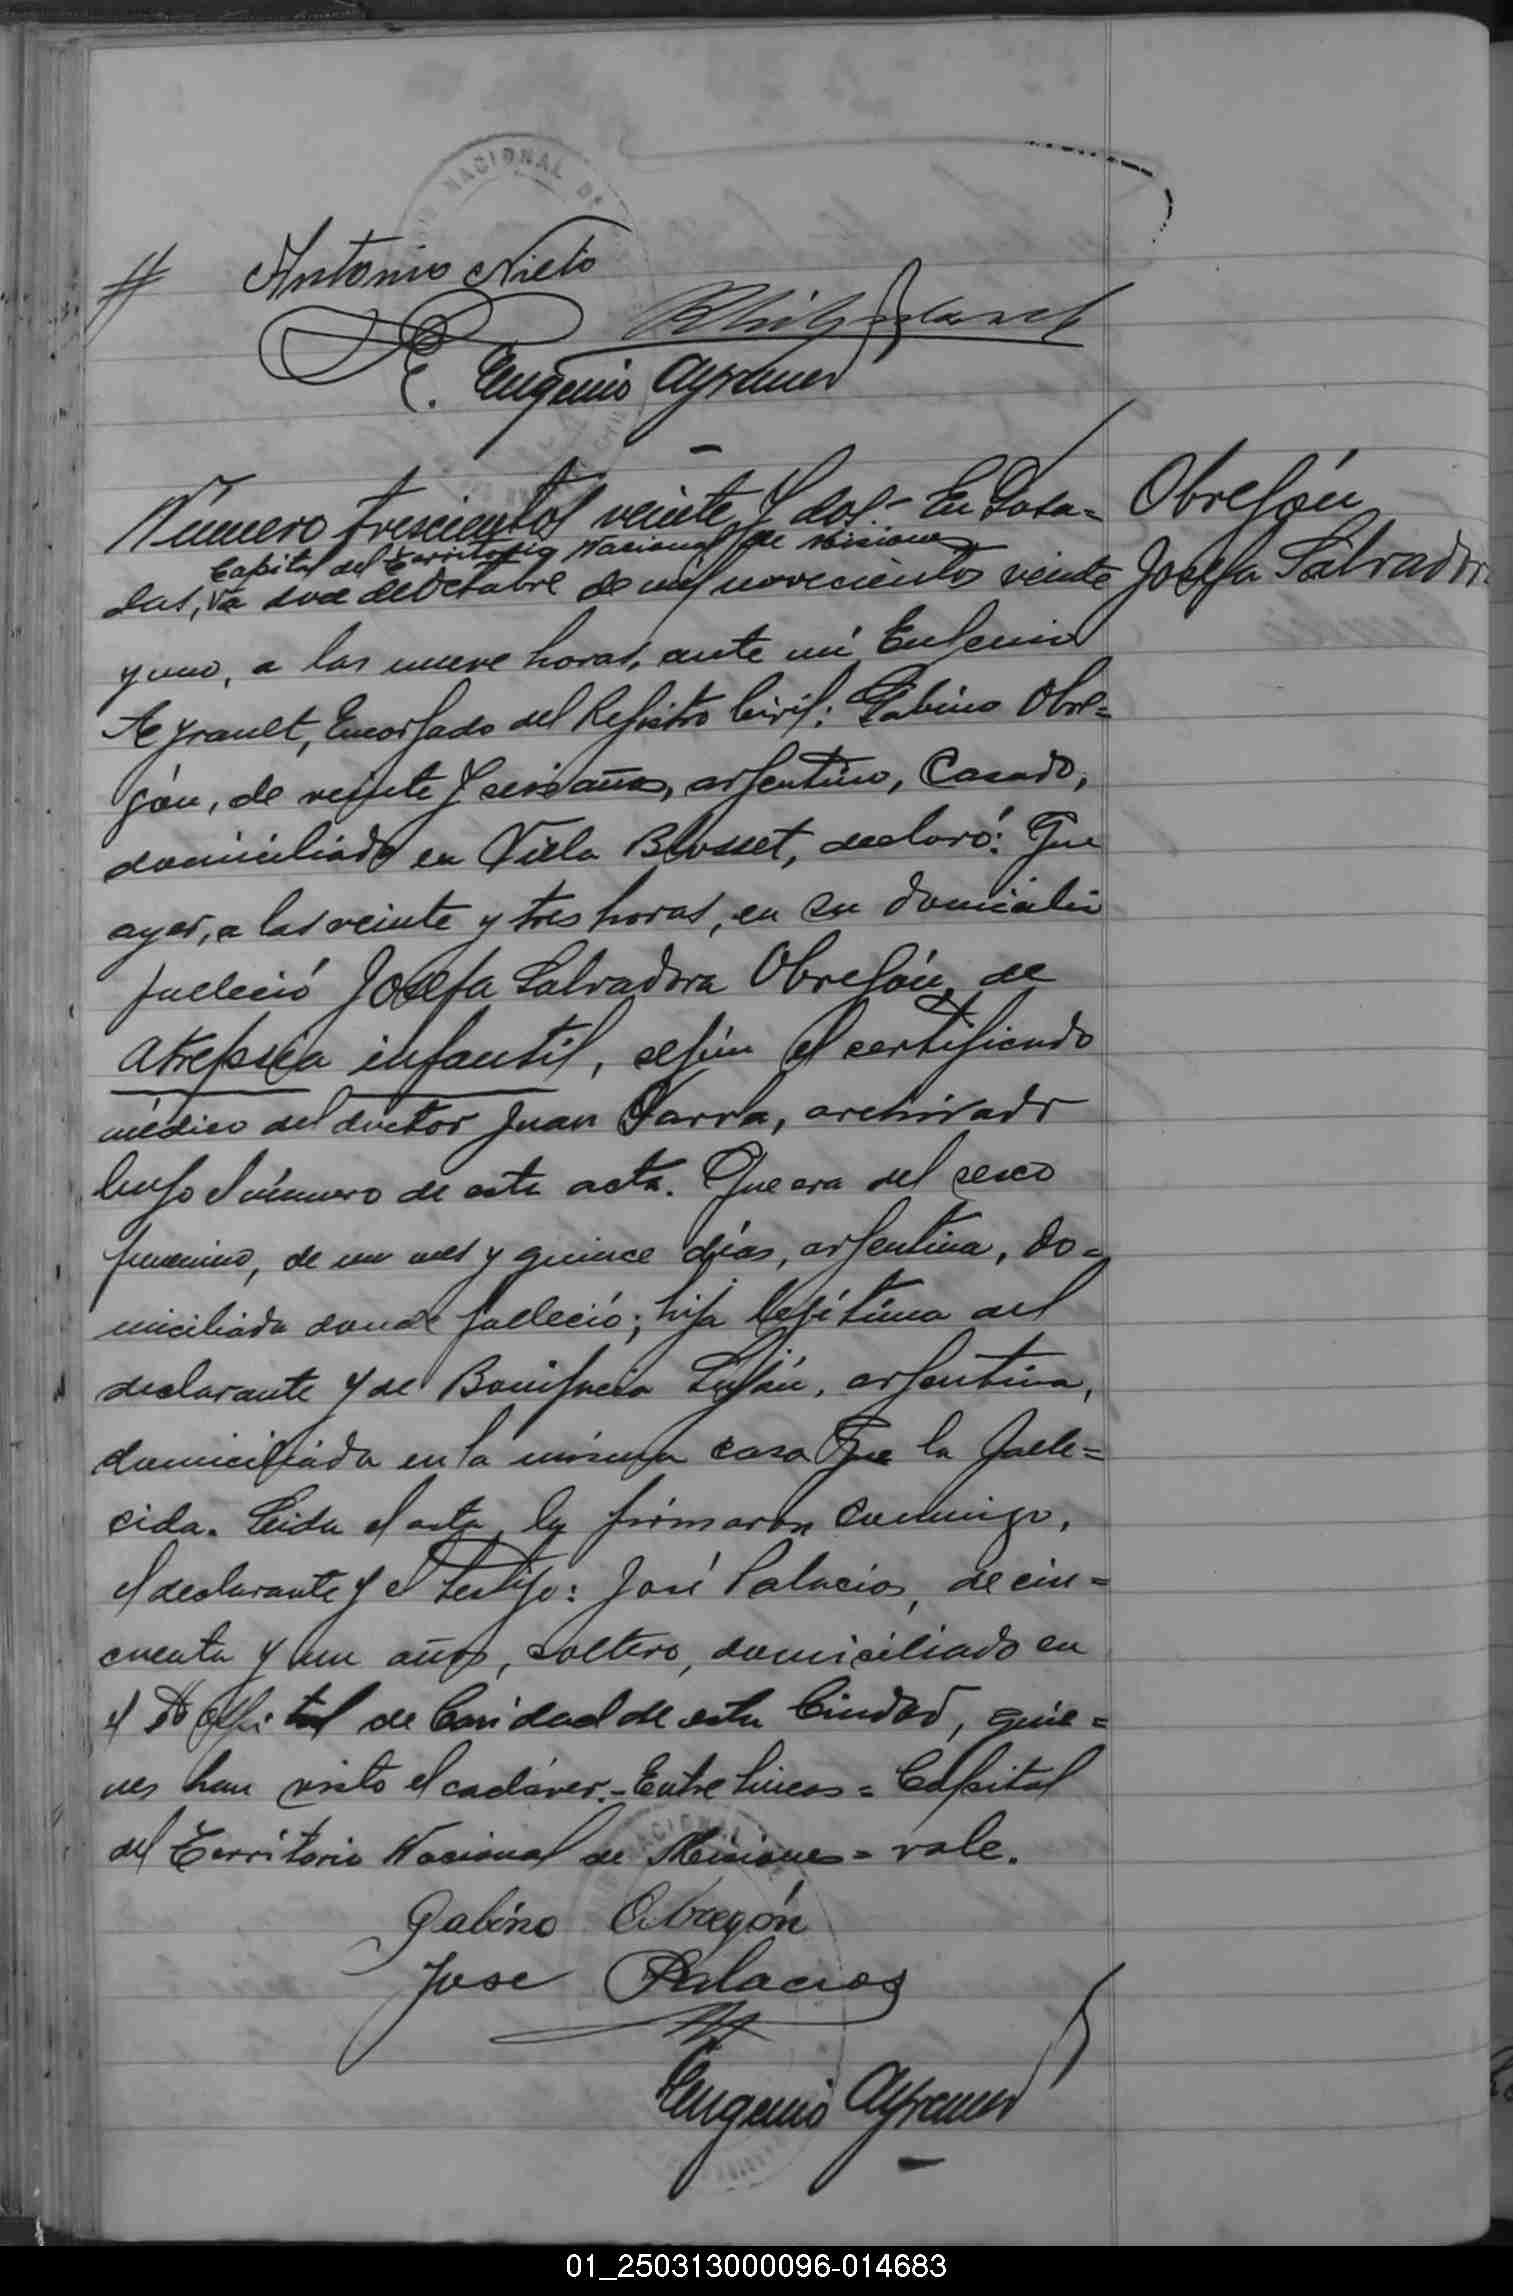 NACIONAL DE
Antonio Nieto
Eugenio Ayrault
Número trescientos veinte y dos.- En Posa= Obregón
Capital del Territorio Nacional de Misiones
das, a doce de Octubre de mil novecientos veinte Josefa Salvadora
y uno, a las nueve horas, ante mí Eugenio
Ayrault, Encargado del Registro Civil: Gabino Obre=
gón, de veinte y seis años, argentino, casado,
domiciliado en Villa Blosset, declaró: Que
ayer, a las veinte y tres horas, en su domicilio
falleció Josefa Salvadora Obregón, de
atrepsia infantil, según el certificado
médico del doctor Juan Parra, archivado
bajo el número de esta acta. Que era del sexo
femenino, de un mes y quince días, argentina, do=
miciliada donde falleció; hija legítima del
declarante y de Bonifacia Luján, argentina,
domiciliada en la misma casa que la falle=
cida. Leida el acta, la firmaron conmigo,
el declarante y el testigo: José Palacios, de cin=
cuenta y un años, soltero, domiciliado en
el Hospital de Caridad de esta Ciudad, quie=
nes han visto el cadáver.- Entre lineas = Capital
del Territorio Nacional de Misiones = vale.
Gabino Obregón
Jose Palacios
Eugenio Ayrault
01_250313000096-014683